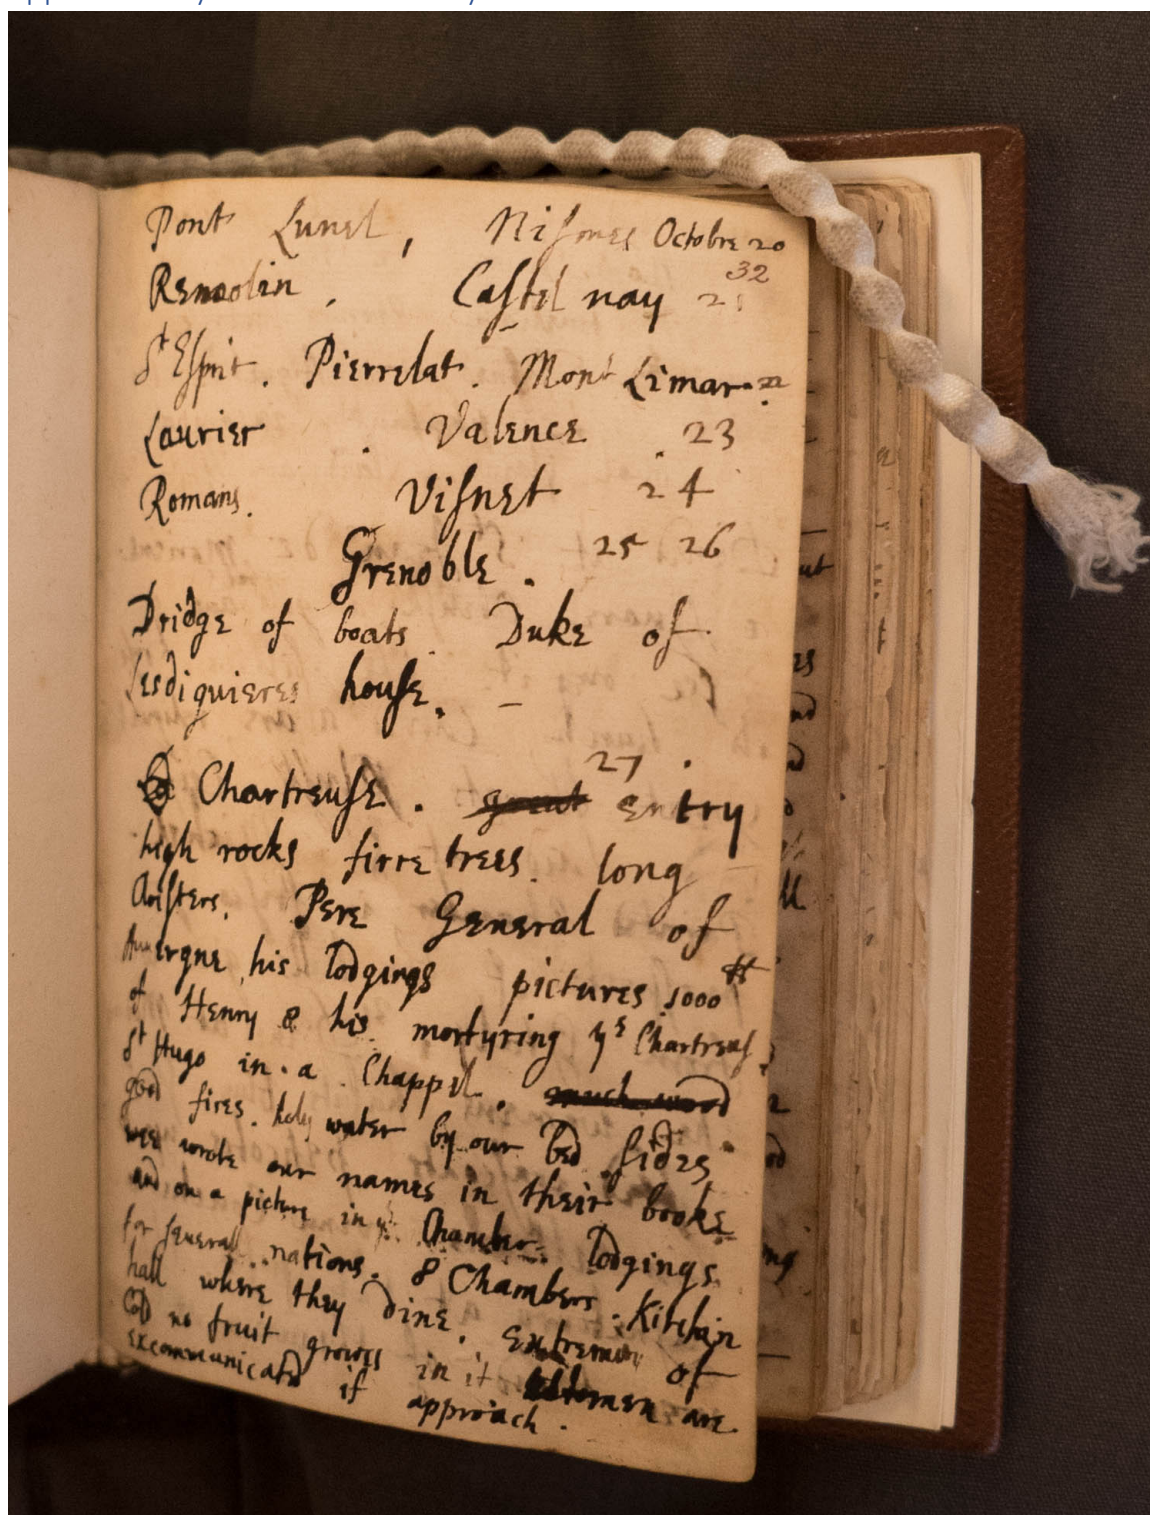 Pont Lunel, Nismes Octobre 20
32
Remoolin. Castel nay 21
St Esprit. Pierrelat. Mont Limar. 22
Laurier. Valence. 23
Romans. Visnet 24
Grenoble. 25 26
Bridge of boats. Duke of
Lesdiguieres house. –
27.
Chartreuse. great entry
high rocks firre trees. long
cloisters. Pere General of
Auvergne his lodgings pictures 1000 tt
of Henry 8 his mortyring ye Chartreus
St Hugo in a Chappel. much wood
good fires. holy water by our bed sides
wee wrote our names in their booke
and on a picture in ye Chamber. lodgings
for several nations. 8 Chambers. Kitchin
hall where they dine. Extremity of
Cold no fruit growes in it women are
excommunicated if approach.